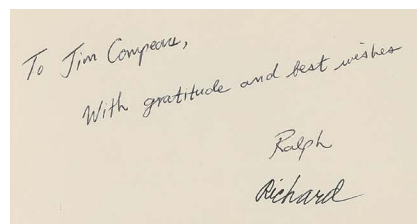 To Jim Compeau,
With gratitude and best wishes
Ralph
Richard